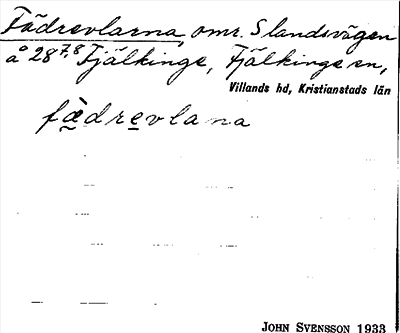 Fädrevlarna, omr. S landsvägen
å 28 7,8 Fjälkinge, Fjälkinge sn,
Villands hd, Kristianstads län
fädrevlana
JOHN SVENSSON 1933